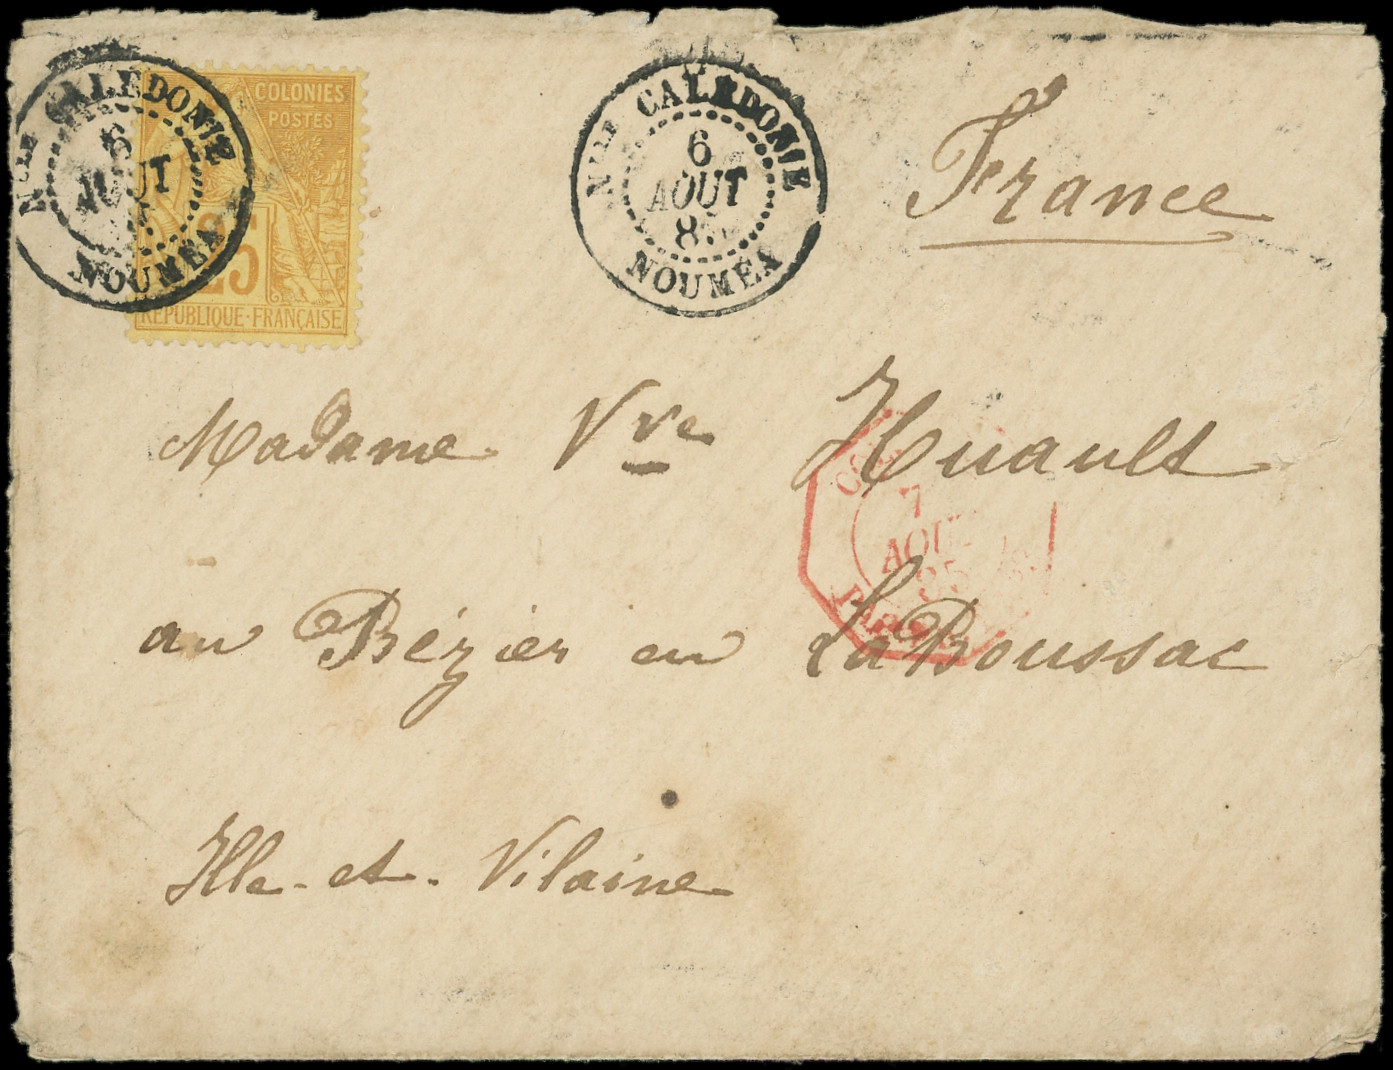 Nlle CALEDONIE
6
AOUT
NOUMÉA
COLONIES
POSTES
25
RÉPUBLIQUE-FRANÇAISE
Nlle CALEDONIE
6
AOUT
8
NOUMÉA
France
Madame Vve Huault
7
AOUT
85
au Bézier en La Boussac
Ille-et-Vilaine